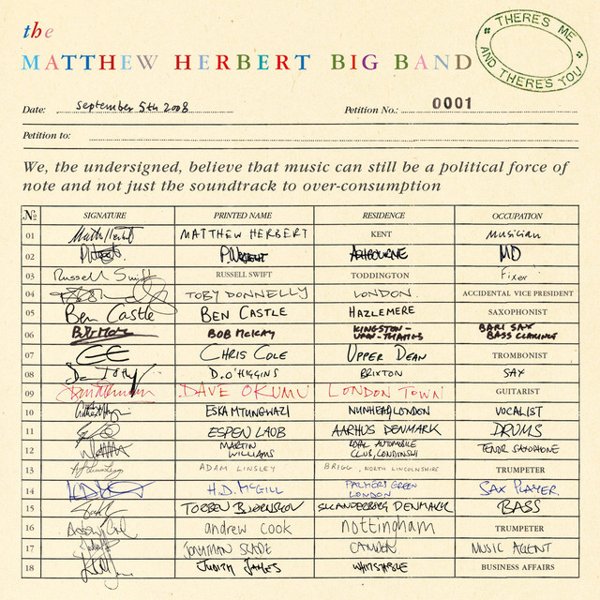 the
MATTHEW HERBERT BIG BAND
THERES ME
AND THERES YOU
Date: September 5th 2008 Petition No.: 0001
Petition to:
We, the undersigned, believe that music can still be a political force of
note and not just the soundtrack to over-consumption
No. SIGNATURE PRINTED NAME RESIDENCE OCCUPATION
01 MATTHEW HERBERT KENT MUSICIAN
02 P. WRIGHT ASHBOURNE MD
03 Russell Swift RUSSELL SWIFT TODDINGTON Fixer
04 TOBY DONNELLY LONDON ACCIDENTAL VICE PRESIDENT
05 Ben Castle BEN CASTLE HAZLEMERE SAXOPHONIST
06 BOB McKAY KINGSTON-UPON-THAMES BARI SAX BASS CLARINET
07 CHRIS COLE UPPER DEAN TROMBONIST
08 D. O'HIGGINS BRIXTON SAX
09 DAVE OKUMU LONDON TOWN GUITARIST
10 ESKA MTUNGWAZI NUNHEAD, LONDON VOCALIST
11 ESPEN LAUB AARHUS DENMARK DRUMS
12 MARTIN WILLIAMS ROYAL AUTOMOBILE CLUB, TENOR SAXOPHONE
13 ADAM LINSLEY BRIGG, NORTH LINCOLNSHIRE TRUMPETER
14 H.D. McGILL PALMERS GREEN LONDON SAX PLAYER
15 TORBEN BJØRNSKOV SKANDERBORG DENMARK BASS
16 andrew cook nottingham TRUMPETER
17 JONATHAN SLADE CAMDEN MUSIC AGENT
18 JUDITH JAMES WHITSTABLE BUSINESS AFFAIRS